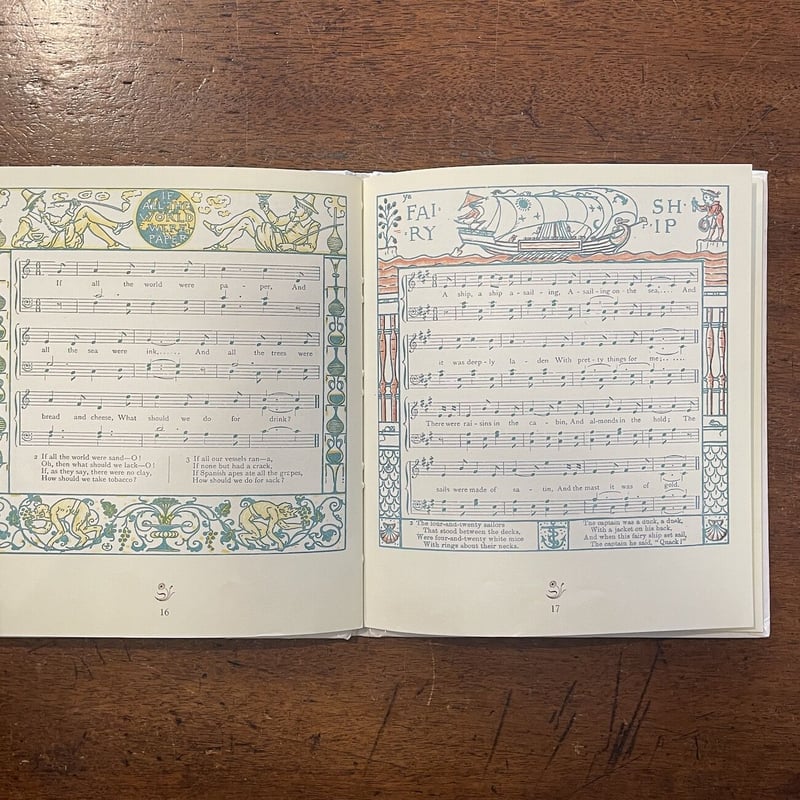 IF
ALL THE
WORLD
WERE
PAPER
If all the world were pa - per, And
all the sea were ink,...... And all the trees were
bread and cheese, What should we do for drink?
2 If all the world were sand—O!
Oh, then what should we lack—O!
If, as they say, there were no clay,
How should we take tobacco?
3 If all our vessels ran—a,
If none but had a crack,
If Spanish apes ate all the grapes,
How should we do for sack?
16
ye
FAI·
·RY
SH·
·IP
A ship, a ship a - sail - ing, A - sail - ing on the sea,.... And
it was deep - ly la - den With pret - ty things for me;......
There were rai - sins in the ca - bin, And al-monds in the hold; The
sails were made of sa - tin, And the mast it was of gold.
2 The four-and-twenty sailors
That stood between the decks,
Were four-and-twenty white mice
With rings about their necks.
The captain was a duck, a duck,
With a jacket on his back,
And when this fairy ship set sail,
The captain he said, "Quack!"
17